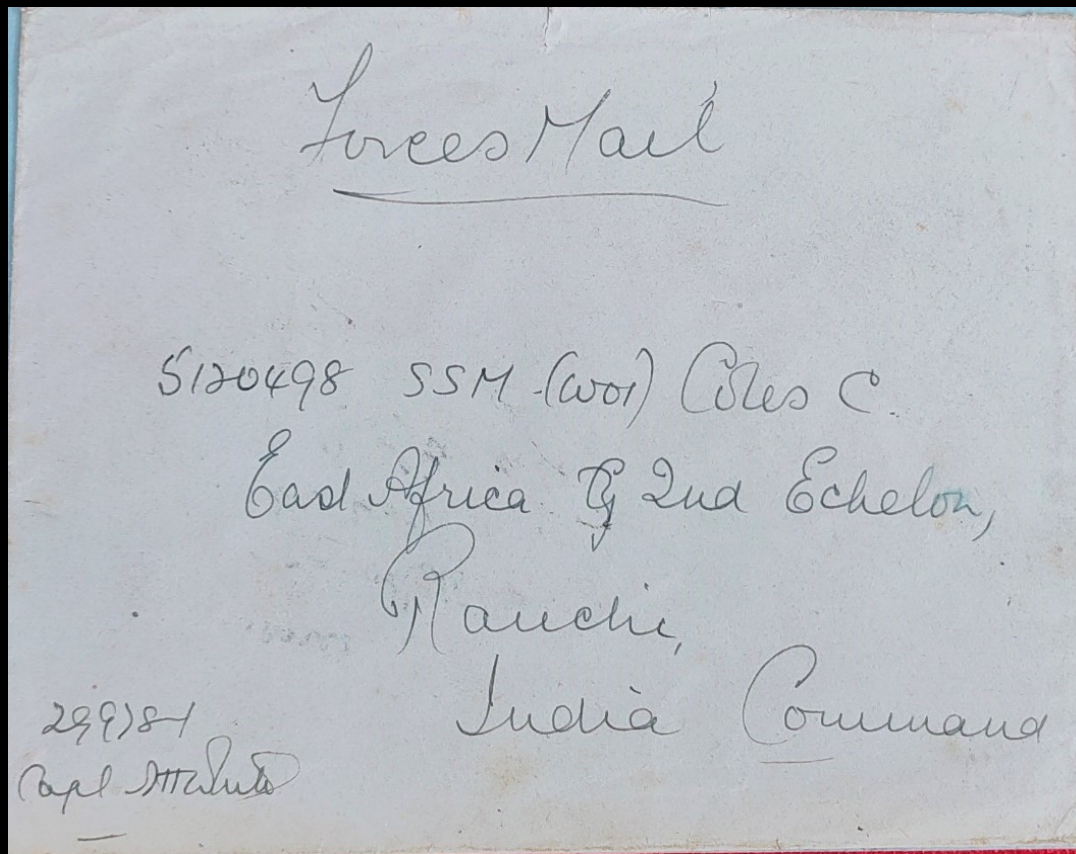 Forces Mail
5120498 SSM (WO1) Coles C.
East Africa 2nd Echelon,
Ranchi,
India Command
Capt